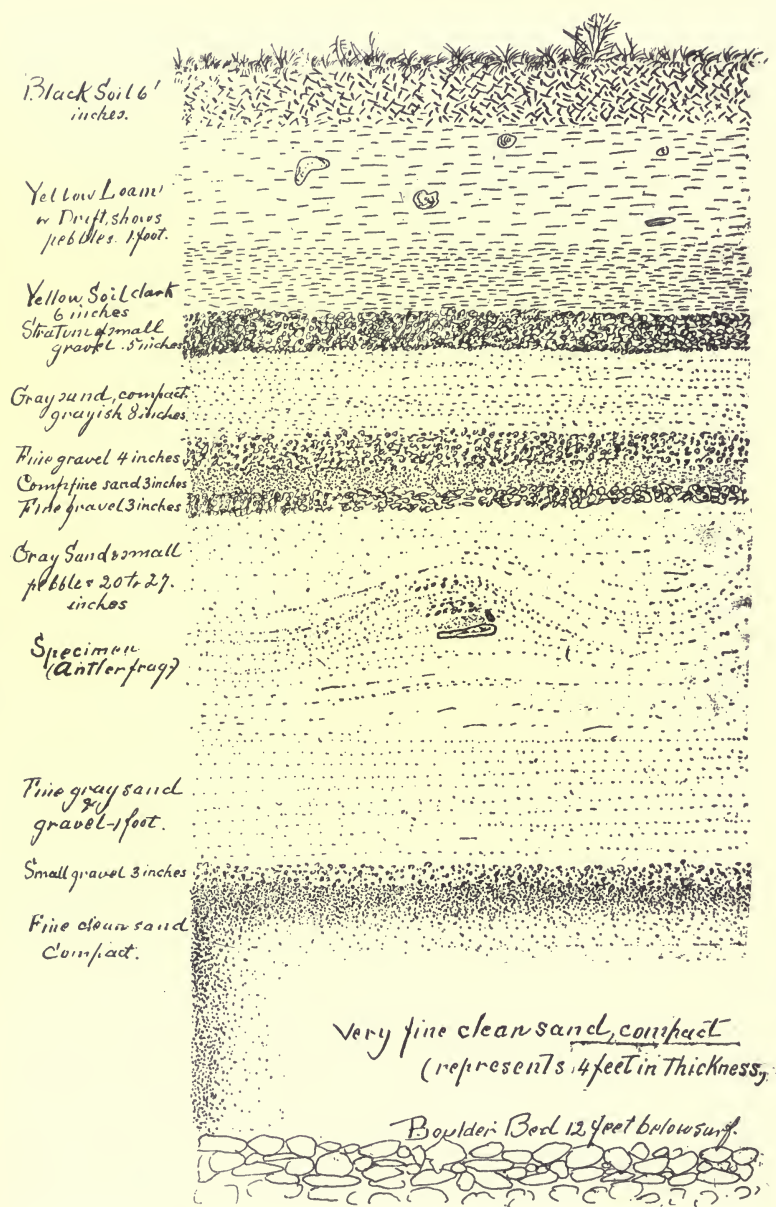 Black Soil 6'
inches.
Yellow Loam
or Drift, shows
pebbles. 1 foot.
Yellow Soil dark
6 inches
Stratum of small
gravel. 5 inches
Gray sand, compact
grayish 8 inches
Fine gravel 4 inches
Comp. fine sand 3 inches
Fine gravel 3 inches
Gray Sand & small
pebbles 20 to 27.
inches
Specimen
(Antler frag?)
Fine gray sand
&
gravel-1 foot.
Small gravel 3 inches
Fine clean sand
Compact.
Very fine clean sand, compact
(represents 4 feet in Thickness,
Boulder Bed 12 feet below surf.